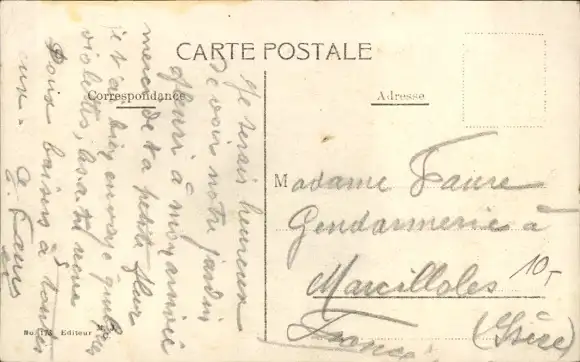 CARTE POSTALE
Correspondance
Adresse
Je serais heureux
de voir notre jardin
fleuri à mon arrivée
merci de ta petite fleur
je t'ai bien envoyé quelques
violettes, les a tu reçue
Doux baisers à toutes
Faure
Madame Faure
Gendarmerie à
Marcilloles
(Isère)
France
10,-
Editeur